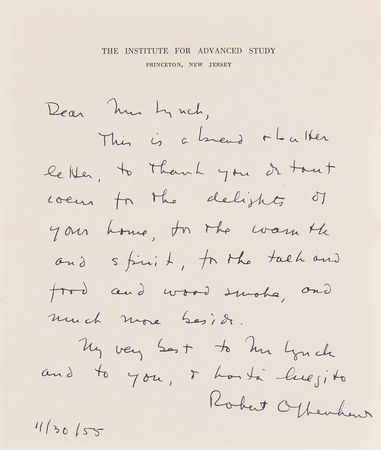 THE INSTITUTE FOR ADVANCED STUDY
PRINCETON, NEW JERSEY
Dear Mrs Lynch,
This is a bread & butter
letter, to thank you de tout
coeur for the delights of
your home, for the warmth
and spirit, for the talk and
food and wood smoke, and
much more beside.
My very best to Mr Lynch
and to you, & hasta lueguito
Robert Oppenheimer
11/30/55